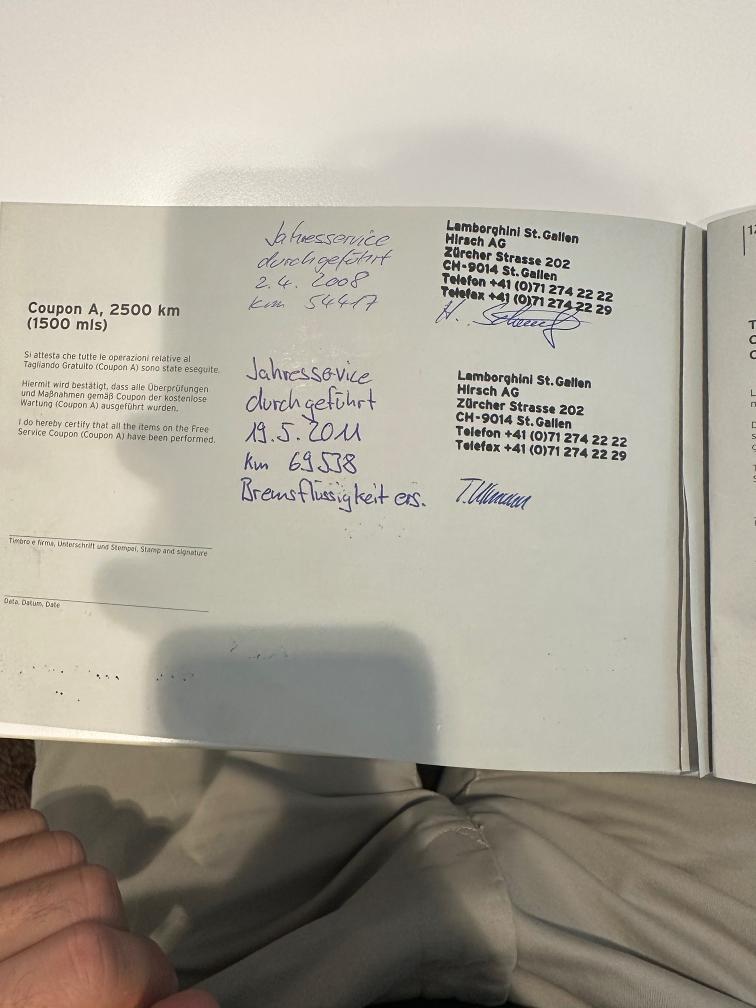 Coupon A, 2500 km
(1500 mls)
Si attesta che tutte le operazioni relative al
Tagliando Gratuito (Coupon A) sono state eseguite.
Hiermit wird bestätigt, dass alle Überprüfungen
und Maßnahmen gemäß Coupon der kostenlose
Wartung (Coupon A) ausgeführt wurden.
I do hereby certify that all the items on the Free
Service Coupon (Coupon A) have been performed.
Timbro e firma, Unterschrift und Stempel, Stamp and signature
Data, Datum, Date
Jahresservice
durchgeführt
2.4. 2008
km 54417
Lamborghini St. Gallen
Hirsch AG
Zürcher Strasse 202
CH-9014 St. Gallen
Telefon +41 (0)71 274 22 22
Telefax +41 (0)71 274 22 29
Jahresservice
durchgeführt
19.5.2011
km 69538
Bremsflüssigkeit ers.
Lamborghini St. Gallen
Hirsch AG
Zürcher Strasse 202
CH-9014 St. Gallen
Telefon +41 (0)71 274 22 22
Telefax +41 (0)71 274 22 29